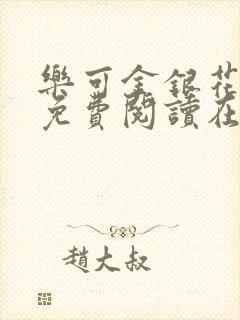 樂可金銀花
免費閱讀在
趙大叔